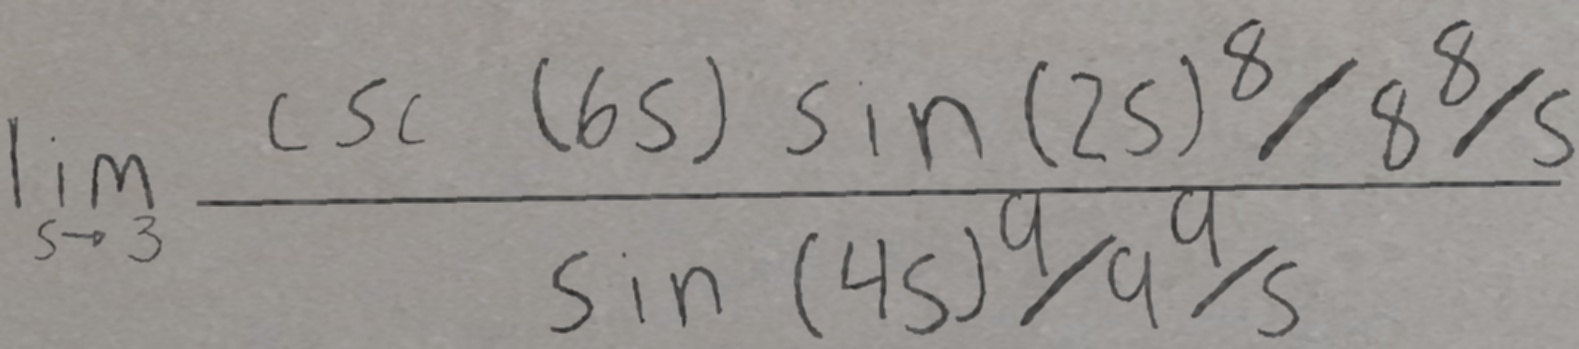 lim s→3 csc (6s) sin (2s)^8/8^8/s
sin (4s)^9/9^9/s